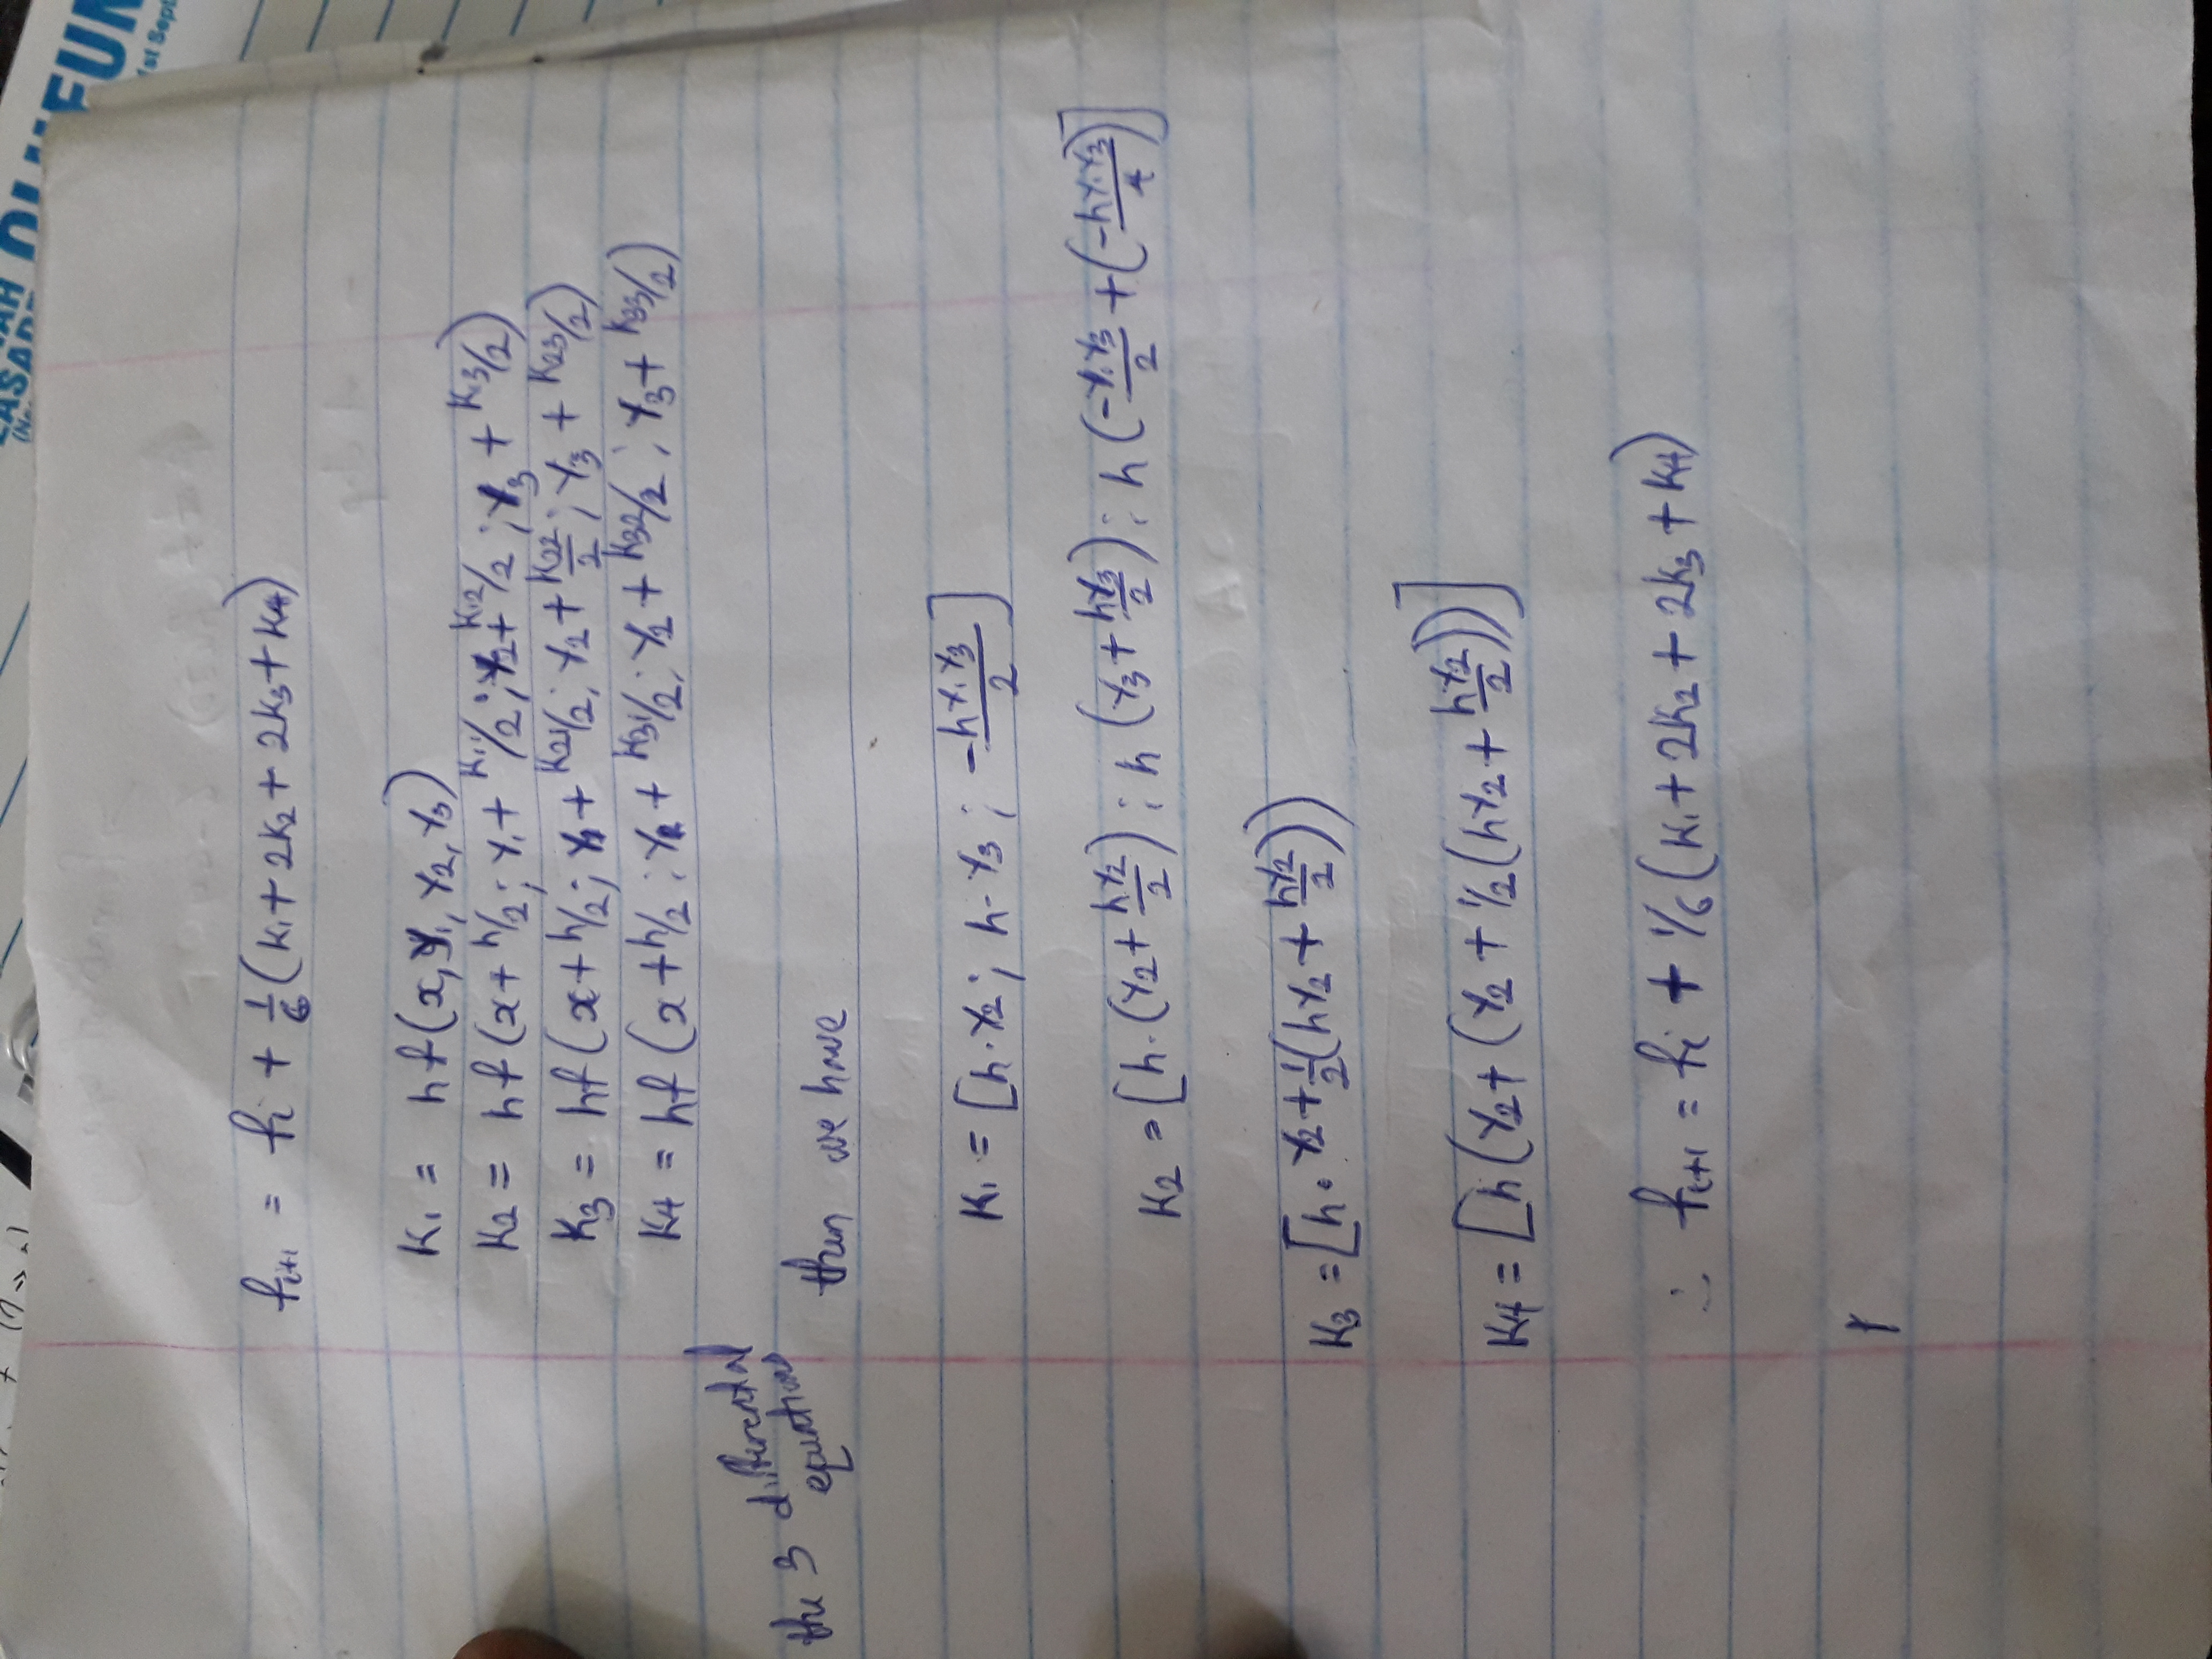 LASAD
OLUFUN
1st Sept
f_{i+1} = f_i + 1/6 (K_1 + 2K_2 + 2K_3 + K_4)
K_1 = hf(x, Y_1, Y_2, Y_3)
K_2 = hf(x + h/2; Y_1 + K_{11}/2; Y_2 + K_{12}/2; Y_3 + K_{13}/2)
K_3 = hf(x + h/2; Y_1 + K_{21}/2; Y_2 + K_{22}/2; Y_3 + K_{23}/2)
K_4 = hf(x + h/2; Y_1 + K_{31}/2; Y_2 + K_{32}/2; Y_3 + K_{33}/2)
the 3 differential
equations
then we have
K_1 = [h·Y_2; h·Y_3; -hY_1Y_3/2]
K_2 = [h·(Y_2 + hY_2/2); h(Y_3 + hY_3/2); h(-Y_1Y_3/2 + (-hY_1Y_3/4)]
K_3 = [h·Y_2 + 1/2(hY_2 + hY_2/2))
K_4 = [h(Y_2 + (Y_2 + 1/2(hY_2 + hY_2/2))]
∴ f_{i+1} = f_i + 1/6 (K_1 + 2K_2 + 2K_3 + K_4)